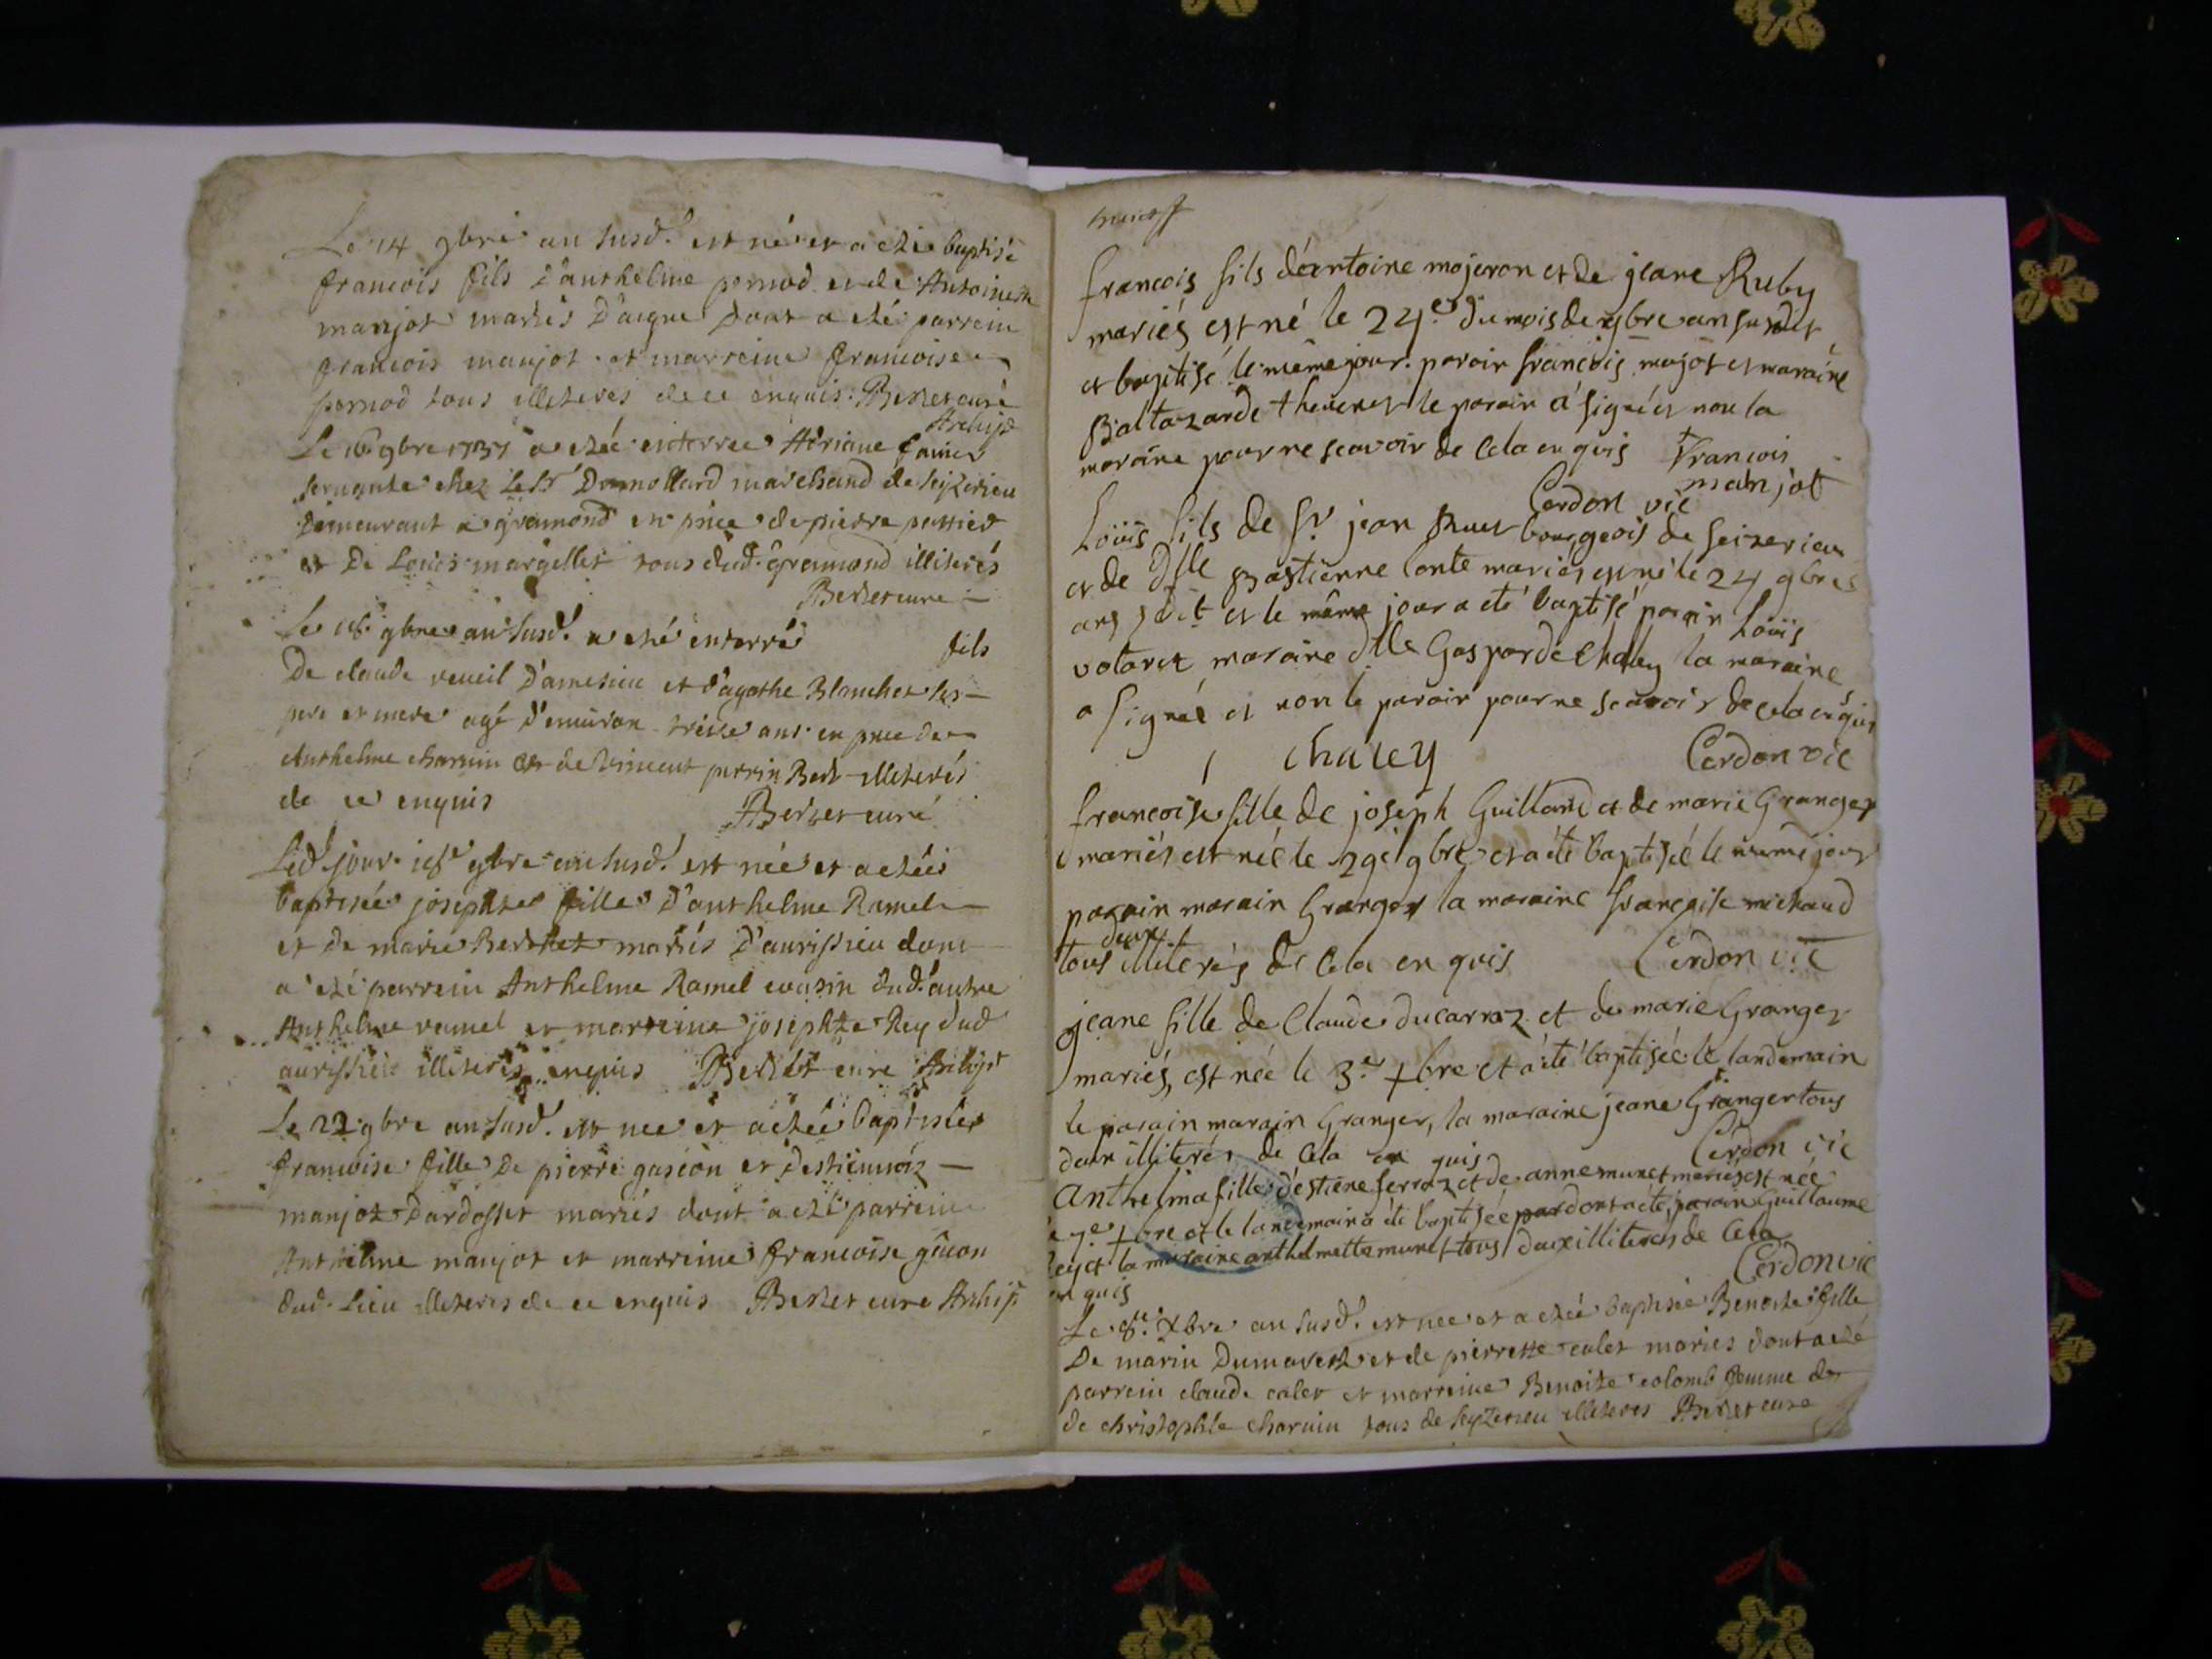 Le 14 9bre an susd.t est né et a eté baptisé
francois fils d'anthelme pernod et de Antoinette
manjot mariés D'aigne dont a eté parrein
francois manjot et marreine francoise
pernod tous illiterés de ce enquis. Berlet curé
Archip.
Le 16 9bre 1737 a etée enterree Adriane
servante chez Le Sr Domollard marchand de seyzerieu
demeurant a gramond en pnce de pierre perrier
et De Louis margillet tous dud. gramond illiterés
Berlet cure
Le 18 9bre an susd.t a eté enterré fils
De claude reveil D'amesieu et d'agathe Blanchet ses
pere et mere agé d'environ treise ans en pnce de
Anthelme charvin et de Vincent perrin illiterés
de ce enquis Berlet curé
Led.t jour 18e 9bre an susd.t est née et a etée
baptisée josephte fille D'anthelme Ramel
et de marie Berthet mariés D'aurissieu dont
a eté parrein Anthelme Ramel cousin dud. autre
Anthelme ramel et marreine josephte Rey dud
aurissieu illiterés enquis Berlet cure Archip.t
Le 22 9bre an susd.t est nee et a etée baptisée
francoise fille De pierre gascon et d'estiennaz
manjot D'ardosset mariés dont a eté parrein
Anthelme manjot et marreine francoise gacon
dud. Lieu illiterés de ce enquis Berlet cure Archip
francois fils d'antoine majeron et de jeane Ruby
mariés est né le 24e du mois de 9bre an susdit
et baptisé le même jour. parain francois majot et maraine
Baltazarde thevenet le parain a signé et non la
maraine pour ne scavoir de cela enquis francois
manjot
Cerdon vic
Louis fils de Sr jean bourgeois de seizerieu
et de Dlle Bastienne conte mariés est né le 24 9bre
an sdit et le même jour a eté baptisé parain Louis
votaret maraine dlle Gasparde chaley la maraine
a signée et non le parain pour ne scavoir de cela enquis
chaley Cerdon vic
francoise fille de joseph Guilland et de marie Granger
mariés est née le 29e 9bre et a été baptisée le même jour
parain marain Granger la maraine francoise michaud
deux
tous illiterés de cela enquis Cerdon vic
jeane fille de Claude ducarraz et de marie Granger
mariés, est née le 3e xbre et a été baptisée le landemain
le parain marain Granger, la maraine jeane Granger tous
deux illiterés de cela en quis Cerdon vic
Anthelma fille d'estiene ferraz et de anne munet mariés est née
le 7e xbre et le landemain a été baptisée par dont a eté parain Guillaume
rey et la maraine anthelmette munet tous deux illiterés de cela
en quis Cerdon vic
Le 8e Xbre an susd.t est nee et a etée baptisée Benoite fille
De marin Dumarest et de pierrette calet mariés dont a eté
parrein claude calet et marreine Benoite colomb femme de
de christophle charvin tous de seyzerieu illiterés Berlet cure